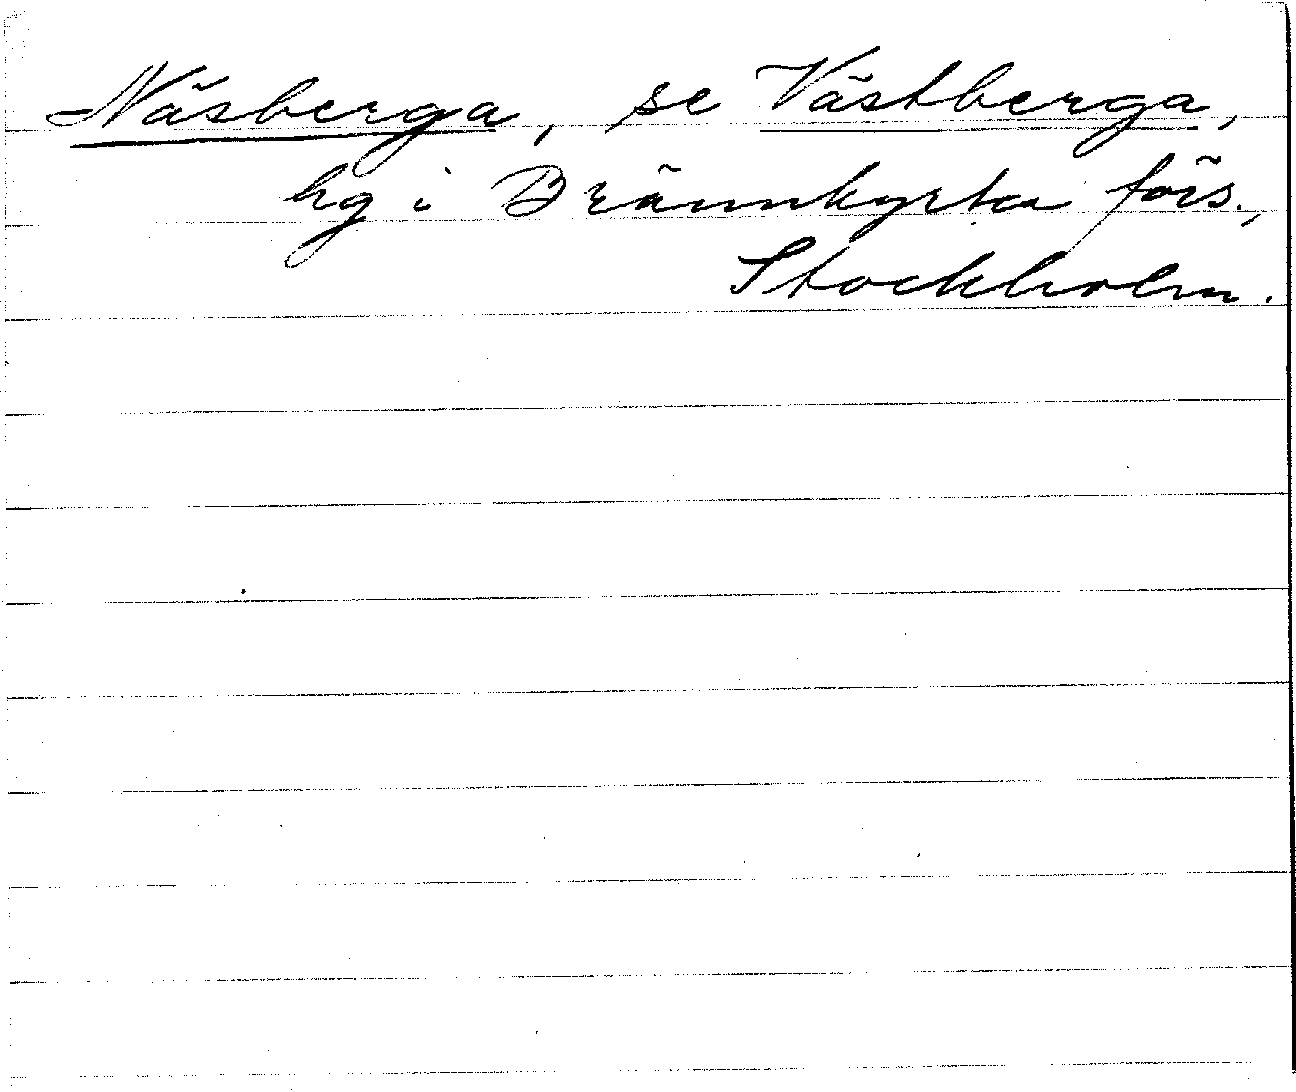 Näsberga, se Västberga,
hg i Brännkyrka förs.,
Stockholm.